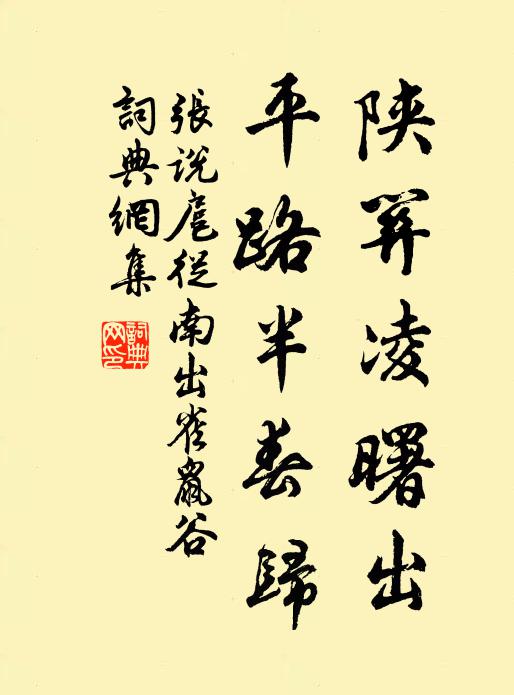 陝關凌曙出
平路半春歸
張說扈從南出雀鼠谷
詞典網集
詞典
网印